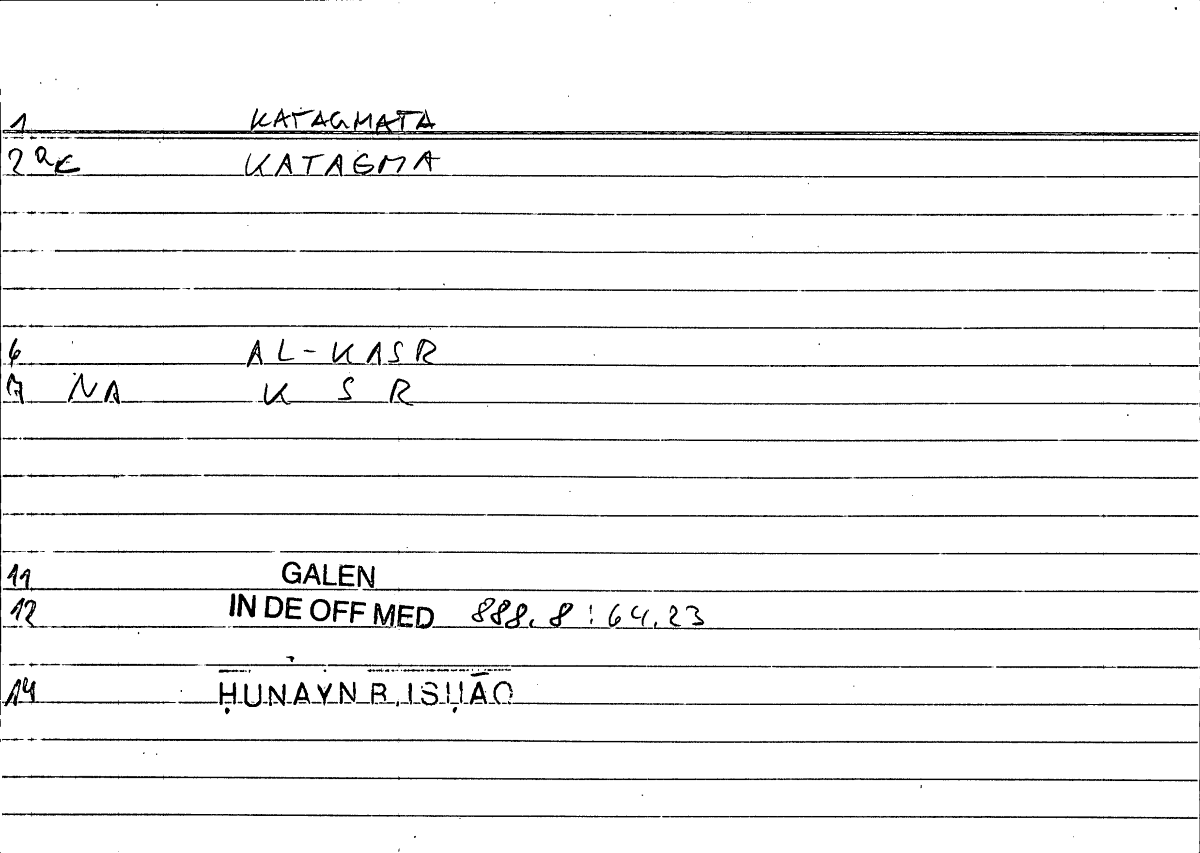 1 KATAGMATA
2ae KATAGMA
6 AL-KASR
7 NA K S R
11 GALEN
12 IN DE OFF MED 888.8:64.23
14 ḤUNAYN B. ISḤĀQ